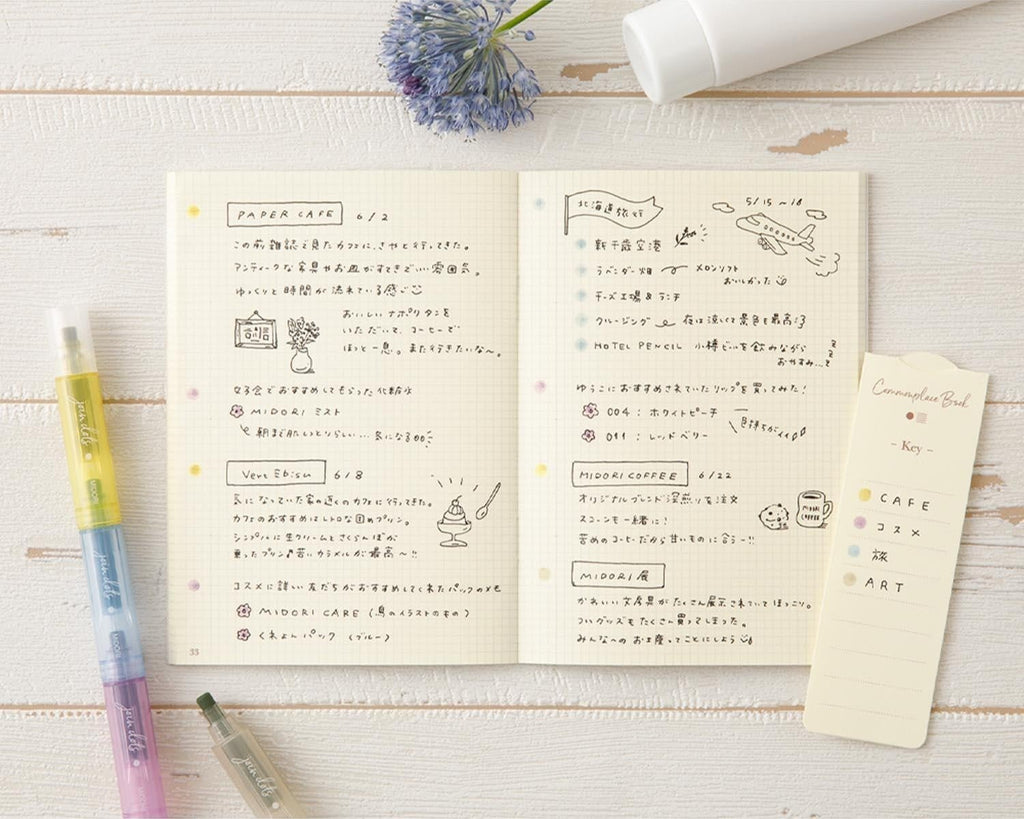 PAPER CAFE 6/2
この前雑誌で見たカフェに、さやと行ってきた。
アンティークな家具やお皿がすてきでいい雰囲気。
ゆっくりと時間が流れている感じ
おいしいナポリタンを
いただいて、コーヒーで
ほっと一息。また行きたいな〜。
女子会でおすすめしてもらった化粧水
MIDORI ミスト
朝まで肌しっとりらしい…気になる
Vert Ebisu 6/8
気になっていた家の近くのカフェに行ってきた。
カフェのおすすめはレトロな固めプリン。
シンプルに生クリームとさくらんぼが
乗ったプリン♪苦いカラメルが最高〜!!
コスメに詳しい友だちがおすすめしてくれたパックのメモ
MIDORI CARE (鳥のイラストのもの)
くれよんパック (ブルー)
33
北海道旅行 5/15〜18
新千歳空港
ラベンダー畑 メロンソフト
おいしかった
チーズ工場&ランチ
クルージング 夜は涼しくて景色も最高!
HOTEL PENCIL 小樽ビールを飲みながら
おやすみ…zzz
ゆうこにおすすめされていたリップを買ってみた!
004:ホワイトピーチ
011:レッドベリー
色持ちがイイ
MIDORI COFFEE 6/22
オリジナルブレンド深煎りを注文
スコーンも一緒に!
苦めのコーヒーだから甘いものに合う〜!!
MIDORI COFFEE
MIDORI 展
かわいい文房具がたくさん展示されていてほっこり。
ついグッズもたくさん買ってしまった。
みんなへのお土産ってことにしよう
Commonplace Book
- Key -
CAFE
コスメ
旅
ART
join dots
MIDORI
join dots
MIDORI
join dots
MIDORI
join dots